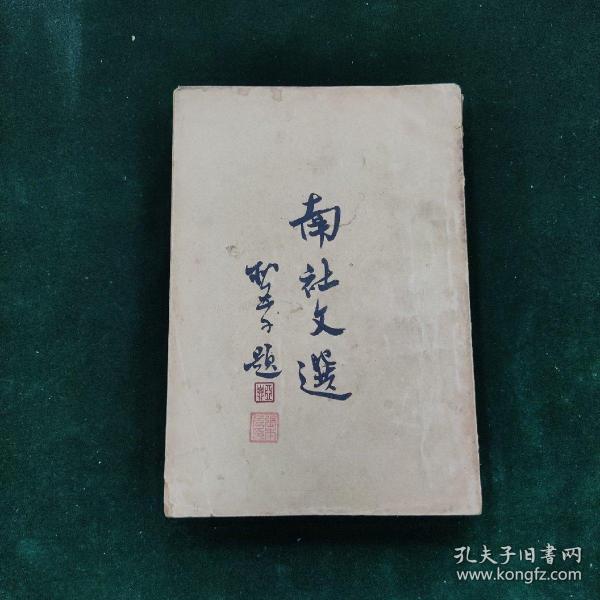 南社文選
柳亞子題
孔夫子旧書网
www.kongfz.com